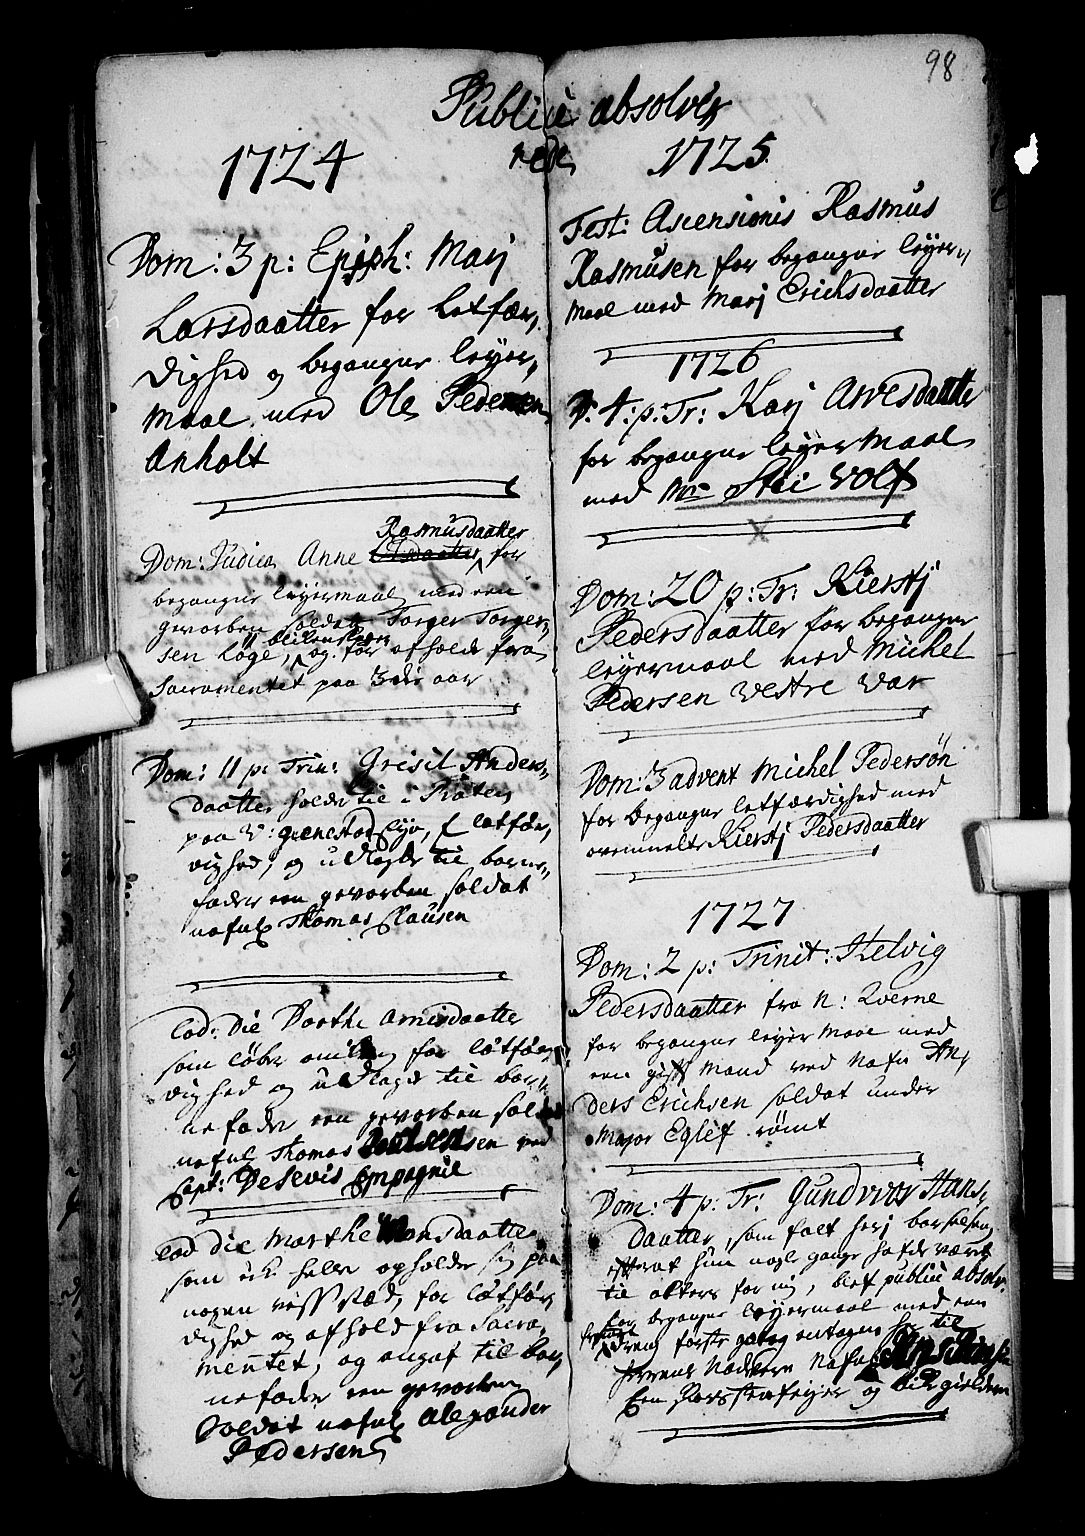 98
Publicè absolve
rede
1724
Dom: 3 p: Epiph: Marj
Larsdaatter for Letfær,
dighed og begangne leyer,
maal med Ole Pedersen
Anholt
Dom: Judica Anne Rasmusdaatter for
begangne leyermaal med een
gevorben soldat Torger Torger,
sen Løge, og for afholde fra
Sacramentet paa 3de aar
Dom: 11 p: Trin: Grisil Anders,
daatter holder til i
paa V: Grenestad for løtfær,
dighed, og udlagde til barne,
fader een gevorben soldat
nafnl Thomas Clausen
Eod: Die Dorthe Arnesdaatter
som løber omkring for løtfær,
dighed og udlagde til bar,
nefader een gevorben soldat
nafnl Thomas sen ved
Capt: Desevis Compagnie
Eod die Marthe Monsdaatter
som icke heller opholder sig paa
nogen visse stæd, for løtfær,
dighed og afhold fra Sacra,
mentet, og angaf til bar,
nefader een gevorben
Soldat nafnl Alexander
Pedersen
1725
Fest: Ascensionis Rasmus
Rasmusen for begangne leyer,
maal med Marj Erichsdaatter
1726
D: 4: p: Tr: Karj Arvesdaatter
for begangne leyermaal
med Mr Stei Wolf
X
Dom: 20 p: Tr: Kierstj
Pedersdaatter for begangne
leyermaal med Michel
Pedersen Vestre Var
Dom: 3 advent Michel Pedersøn
for begangne letfærdighed med
ovenmelte Kierstj Pedersdaatter
1727
Dom: 2 p: Trinit: Helvig
Pedersdaatter fra N: Qverne
for begangne leyermaal med
een gift Mand ved nafn An,
ders Erichsen soldat under
Major Eglef rømt
Dom: 4 p: Tr: Gundvor Hans,
daatter, som falt i barselseng
efterat hun nogle gange hafde været
til alters for mig, blef publicè absolv:
for begangne leyermaal med een
dreng første gang antagen til
Herrens Nadvere Nafnl
Een og